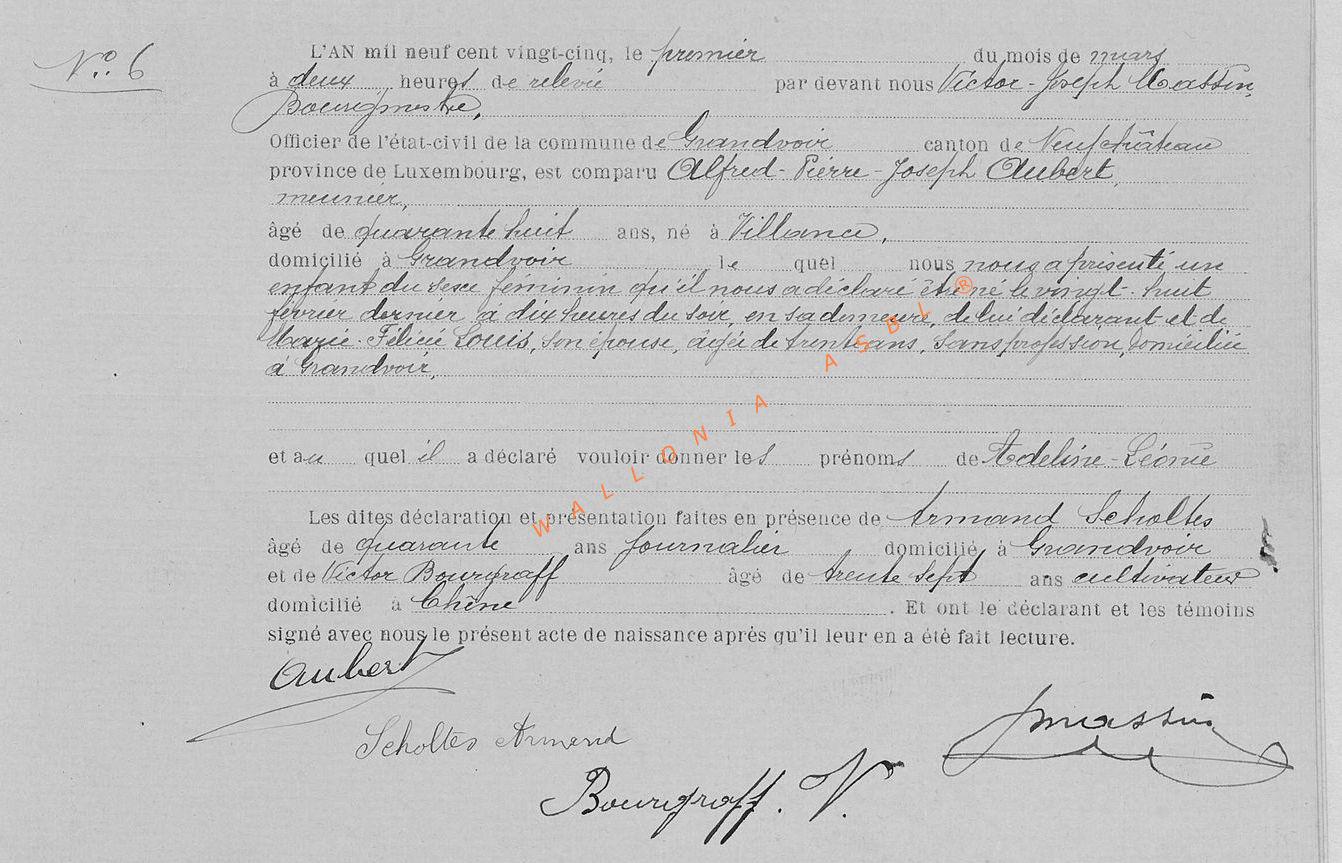 N° 6
L'AN mil neuf cent vingt-cinq, le premier du mois de mars
à deux heures de relevée par devant nous Victor-Joseph Massin,
Bourgmestre,
Officier de l'état-civil de la commune de Grandvoir canton de Neufchâteau
province de Luxembourg, est comparu Alfred-Pierre-Joseph Aubert,
meunier,
âgé de quarante huit ans, né à Villance,
domicilié à Grandvoir le quel nous nous a présenté un
enfant du sexe féminin qu'il nous a déclaré être né le vingt-huit
février dernier à dix heures du soir, en sa demeure, de lui déclarant et de
Marie-Félicie Louis, son épouse, âgée de trente ans, sans profession, domiciliée
à Grandvoir,
et au quel il a déclaré vouloir donner les prénoms de Adeline-Léonie
Les dites déclaration et présentation faites en présence de Armand Scholtes
âgé de quarante ans journalier domicilié à Grandvoir
et de Victor Bourgraff âgé de trente sept ans cultivateur
domicilié à Chêne . Et ont le déclarant et les témoins
signé avec nous le présent acte de naissance après qu'il leur en a été fait lecture.
Aubert
Scholtes Armand
Jmassin
Bourgraff. V.
WALLONIA ASBL ®